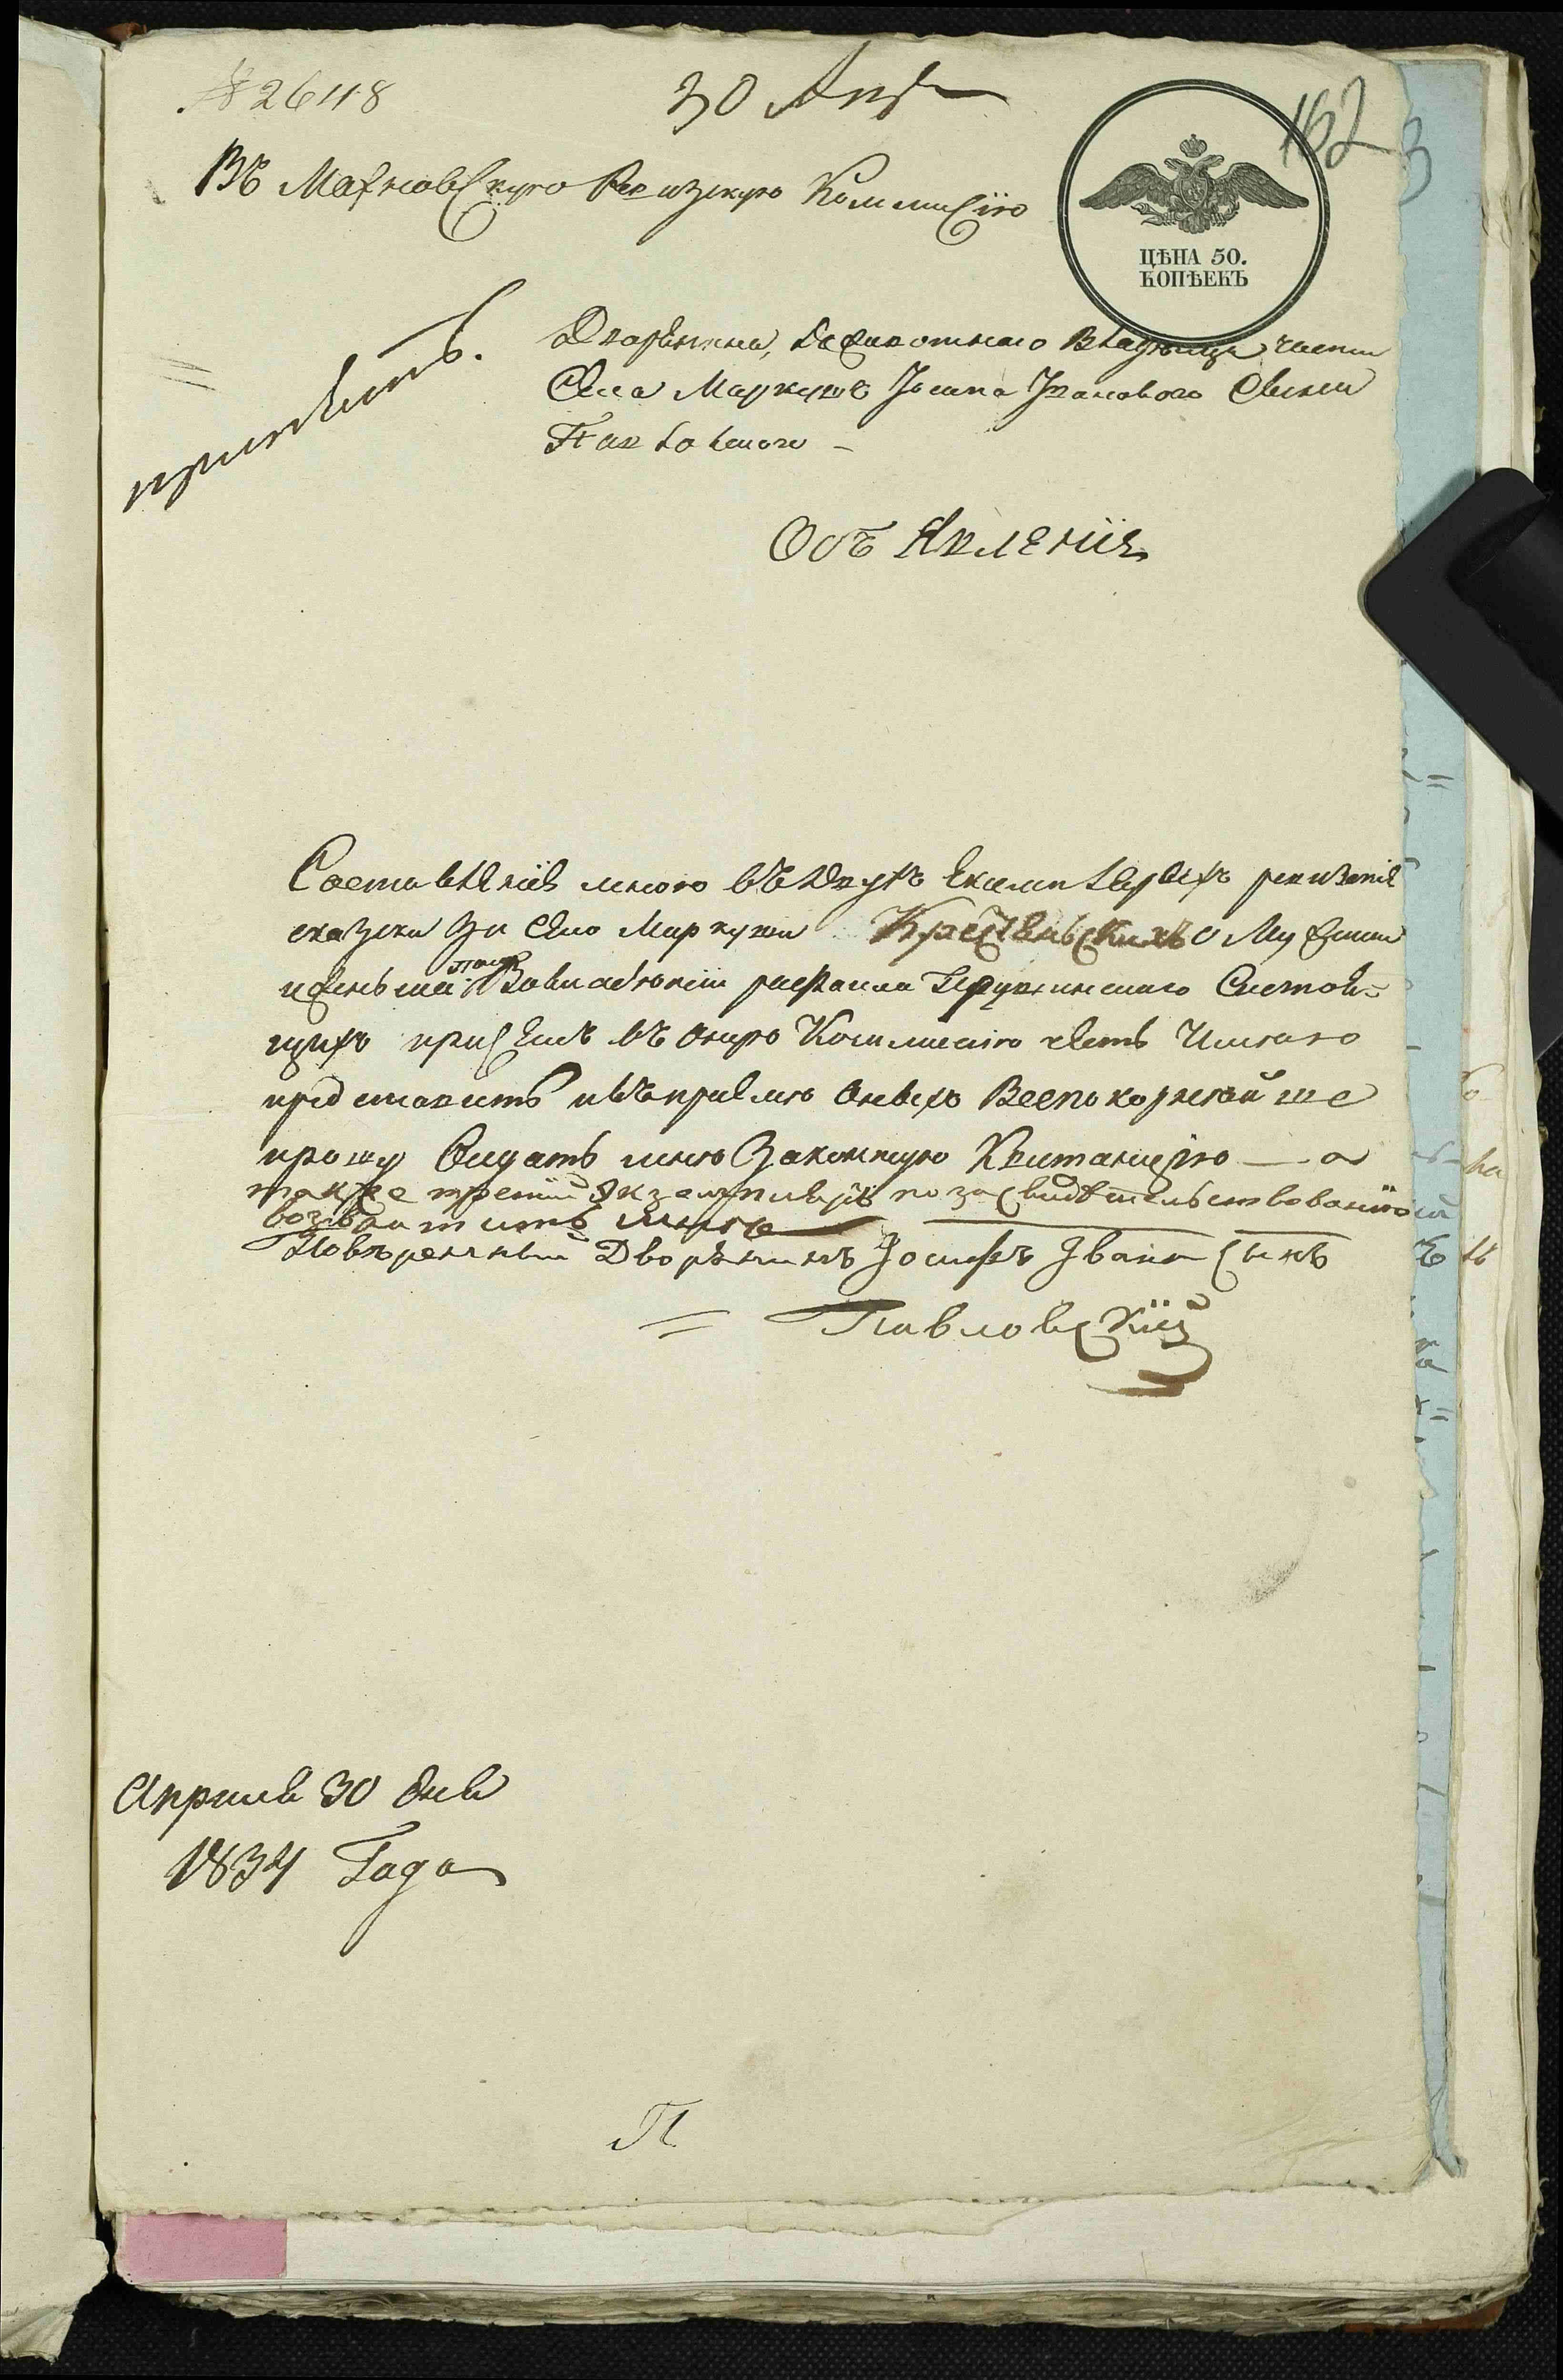 № 26118
30 Апр
162
Въ Махновскую Ревизскую Коммисію
ЦѢНА 50.
КОПѢЕКЪ
принять.
Дворянина, владѣльца части
Села Маркушъ Іосипа Ивановаго Сына
Павловскаго
Объявленія
Составленіе мною въ двухъ Екземплярахъ ревизкіе
сказки За Село Маркуши Крестьянскихъ о Мужеска
и женска пола Во владѣніи Состоя=
щихъ при семъ въ оную Коммисію честь Имѣю
представить и въ пріемѣ оныхъ Всепокорнѣйше
прошу Выдать мнѣ Законную Квитанцію — а
также третій Экземпляръ по засвидѣтельствованію
возвратить мнѣ
Повѣренный Дворянинъ Іосифъ Ивана Сынъ
Павловскій
Апреля 30 дня
1834 Года
П